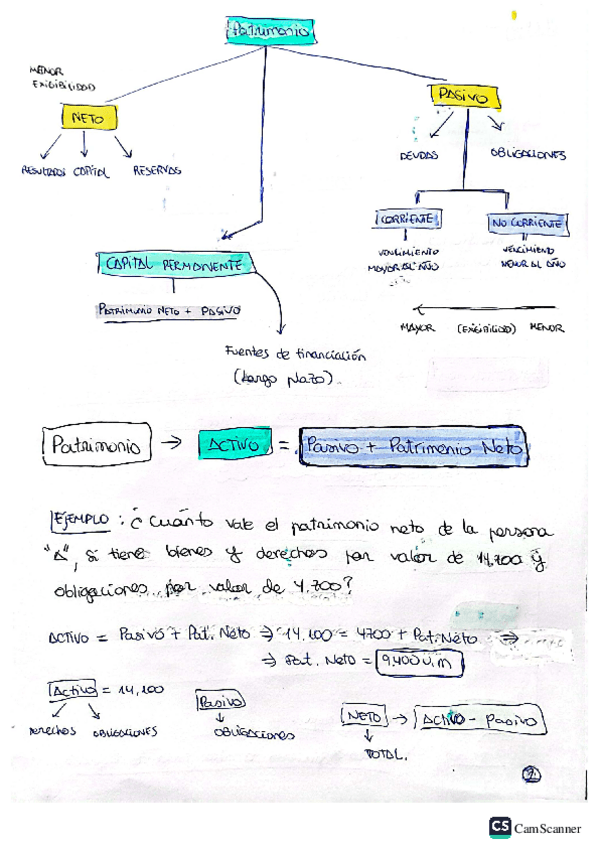 Patrimonio
MENOR
EXIGIBILIDAD
NETO
PASIVO
RESULTADOS CAPITAL RESERVAS
DEUDAS
OBLIGACIONES
CORRIENTE
NO CORRIENTE
VENCIMIENTO
MAYOR AL AÑO
VENCIMIENTO
MENOR AL AÑO
CAPITAL PERMANENTE
PATRIMONIO NETO + PASIVO
MAYOR (EXIGIBILIDAD) MENOR
Fuentes de financiación
(Largo plazo).
Patrimonio → ACTIVO = Pasivo + Patrimonio Neto
EJEMPLO: ¿Cuánto vale el patrimonio neto de la persona
"A", si tiene bienes y derechos por valor de 14,100 y
obligaciones por valor de 4,700?
ACTIVO = Pasivo + Pat. Neto ⇒ 14,100 = 4700 + Pat. Neto ⇒
⇒ Pat. Neto = 9,400 u.m
Activo = 14,100
Pasivo
NETO → Activo - Pasivo
Derechos OBLIGACIONES
OBLIGACIONES
TOTAL.
CS CamScanner